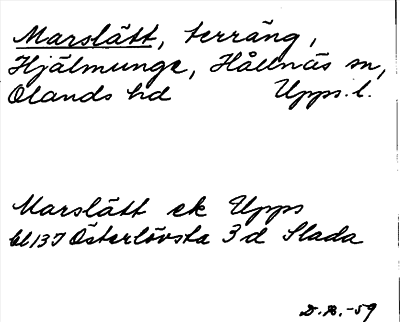 Marslätt, terräng,
Hjälmunge, Hållnäs sn,
Olands hd Upps. l.
Marslätt ek Upps
bl 137 Österlövsta 3d Slada
D.B.-59